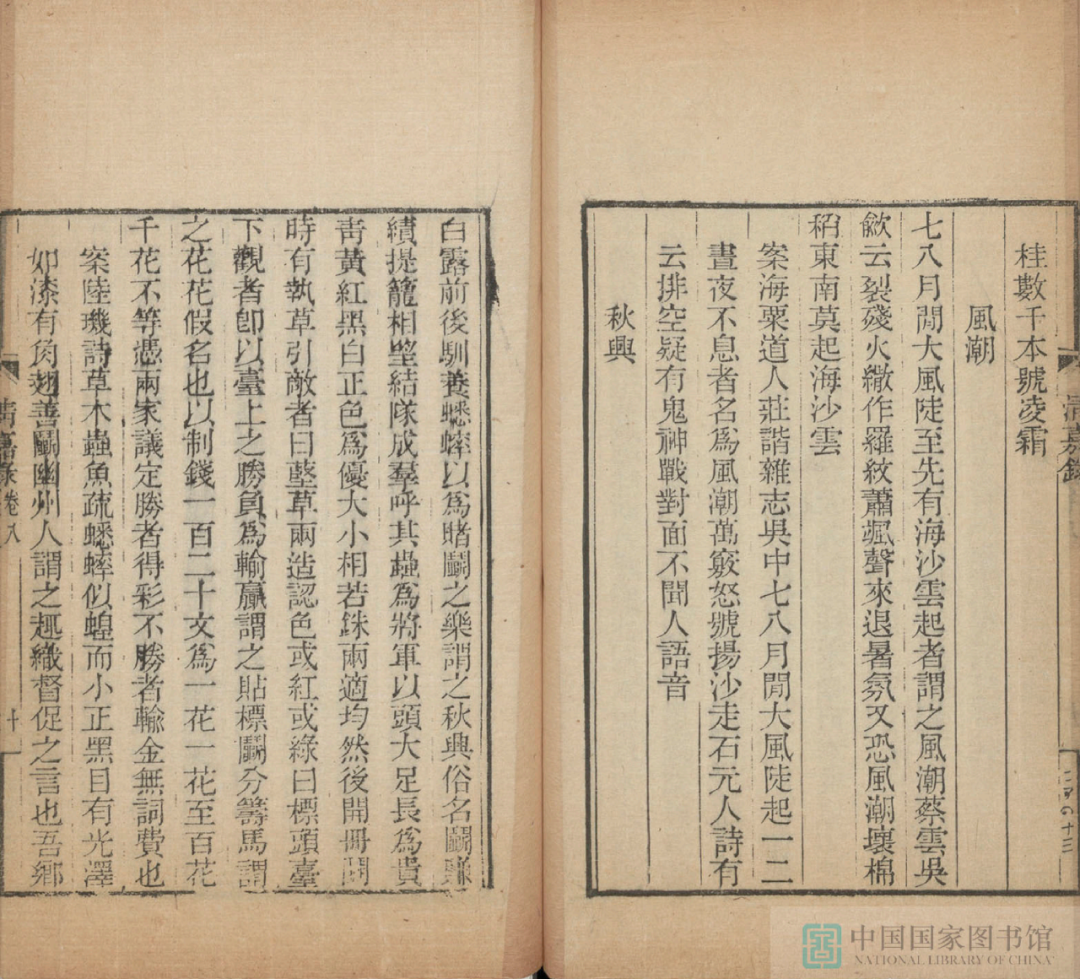 清嘉錄
二百四十三
桂數千本號凌霜
風潮
七八月閒大風陡至先有海沙雲起者謂之風潮蔡雲吳
歈云裂殘火繖作羅紋蕭颯聲來退暑氛又恐風潮壞棉
稻東南莫起海沙雲
案海粟道人莊諧雜志吳中七八月閒大風陡起一二
晝夜不息者名爲風潮萬竅怒號揚沙走石元人詩有
云排空疑有鬼神戰對面不聞人語音
秋興
白露前後馴養蟋蟀以爲賭鬭之樂謂之秋興俗名鬭賺
績提籠相望結隊成羣呼其蟲爲將軍以頭大足長爲貴
靑黃紅黑白正色爲優大小相若銖兩適均然後開冊鬭
時有執草引敵者曰𦬊草兩造認色或紅或綠曰標頭臺
下觀者卽以臺上之勝負爲輸贏謂之貼標鬭分籌馬謂
之花花假名也以制錢一百二十文爲一花一花至百花
千花不等憑兩家議定勝者得彩不勝者輸金無詞費也
案陸璣詩草木蟲魚疏蟋蟀似蝗而小正黑目有光澤
如漆有角翅善鬭幽州人謂之趣織督促之言也吾鄉
淸嘉錄卷八
十
中国国家图书馆
NATIONAL LIBRARY OF CHINA